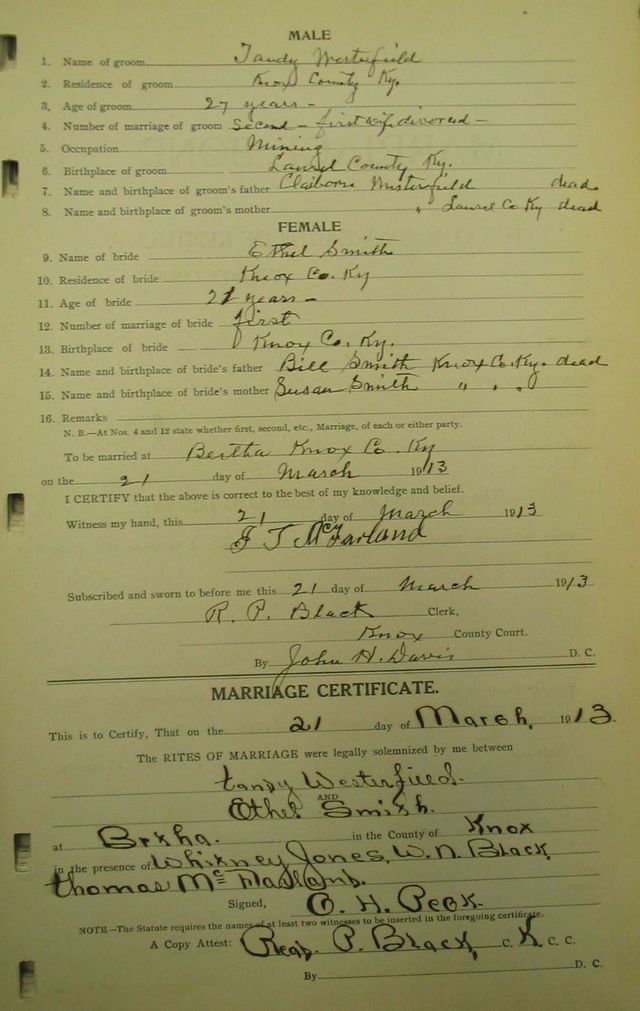 MALE
1. Name of groom Tandy Westerfield
2. Residence of groom Knox County Ky.
3. Age of groom 27 years -
4. Number of marriage of groom Second - first wife divorced -
5. Occupation Mining
6. Birthplace of groom Laurel County Ky.
7. Name and birthplace of groom's father Claiborn Westerfield dead
8. Name and birthplace of groom's mother " Laurel Co Ky dead
FEMALE
9. Name of bride Ethel Smith
10. Residence of bride Knox Co. Ky
11. Age of bride 21 years -
12. Number of marriage of bride first
13. Birthplace of bride Knox Co. Ky.
14. Name and birthplace of bride's father Bill Smith Knox Co. Ky. dead
15. Name and birthplace of bride's mother Susan Smith " " "
16. Remarks
N. B.—At Nos. 4 and 12 state whether first, second, etc., Marriage, of each or either party.
To be married at Bertha Knox Co. Ky
on the 21 day of March 1913
I CERTIFY that the above is correct to the best of my knowledge and belief.
Witness my hand, this 21 day of March 1913
J T McFarland
Subscribed and sworn to before me this 21 day of March 1913
R. P. Black Clerk,
Knox County Court.
By John H. Davis D. C.
MARRIAGE CERTIFICATE.
This is to Certify, That on the 21 day of March, 1913.
The RITES OF MARRIAGE were legally solemnized by me between
tandy Westerfield.
AND
Ethel Smith.
at Bertha. in the County of Knox
in the presence of Whitney Jones, W. N. Black,
thomas McFarland.
Signed, O. H. Peck.
NOTE—The Statute requires the names of at least two witnesses to be inserted in the foregoing certificate.
A Copy Attest: P. Black, C. K C. C.
By D. C.